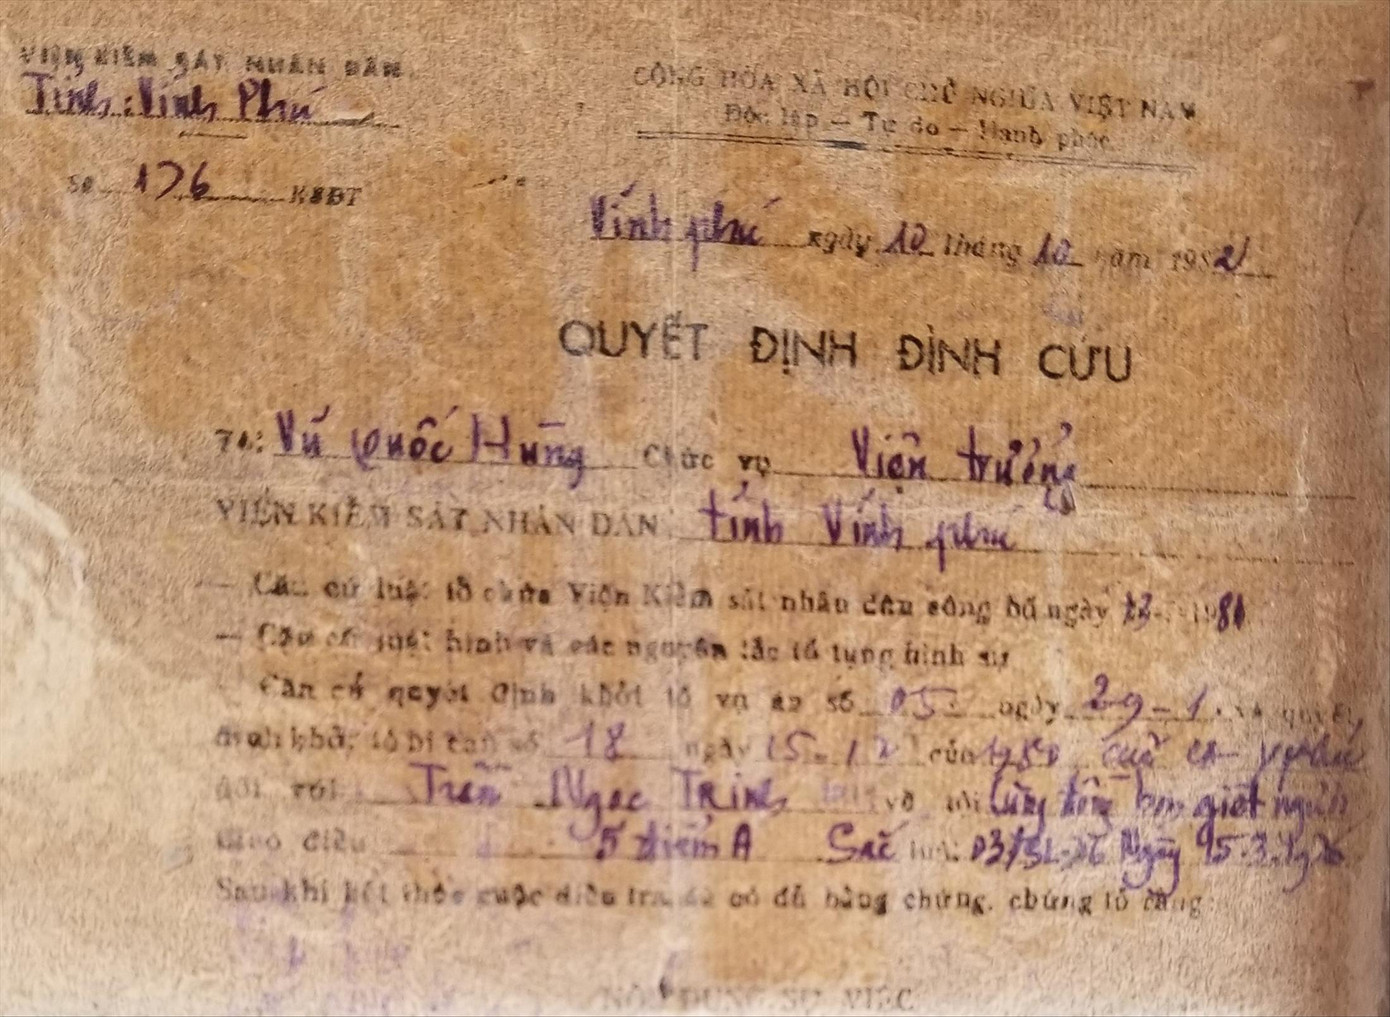 VIỆN KIỂM SÁT NHÂN DÂN
Tỉnh: Vĩnh Phú
Số 176 KSĐT
CỘNG HÒA XÃ HỘI CHỦ NGHĨA VIỆT NAM
Độc lập - Tự do - Hạnh phúc
Vĩnh phú ngày 10 tháng 10 năm 1982
QUYẾT ĐỊNH ĐÌNH CỨU
Tôi: Vũ Quốc Hùng Chức vụ Viện trưởng
VIỆN KIỂM SÁT NHÂN DÂN tỉnh Vĩnh phú
- Căn cứ luật tổ chức Viện Kiểm sát nhân dân công bố ngày 1981
- Căn cứ luật hình và các nguyên tắc tố tụng hình sự
- Căn cứ quyết định khởi tố vụ án số 05 ngày 29-1 và quyết
định khởi tố bị can số 18 ngày 15-12 của
đối với Trần Ngọc Trinh về tội
theo điều 5 điểm A Sắc luật 03/SL-76 Ngày 15.3.1976
Sau khi kết thúc cuộc điều tra đã có đủ bằng chứng, chứng tỏ rằng:
NỘI DUNG SỰ VIỆC